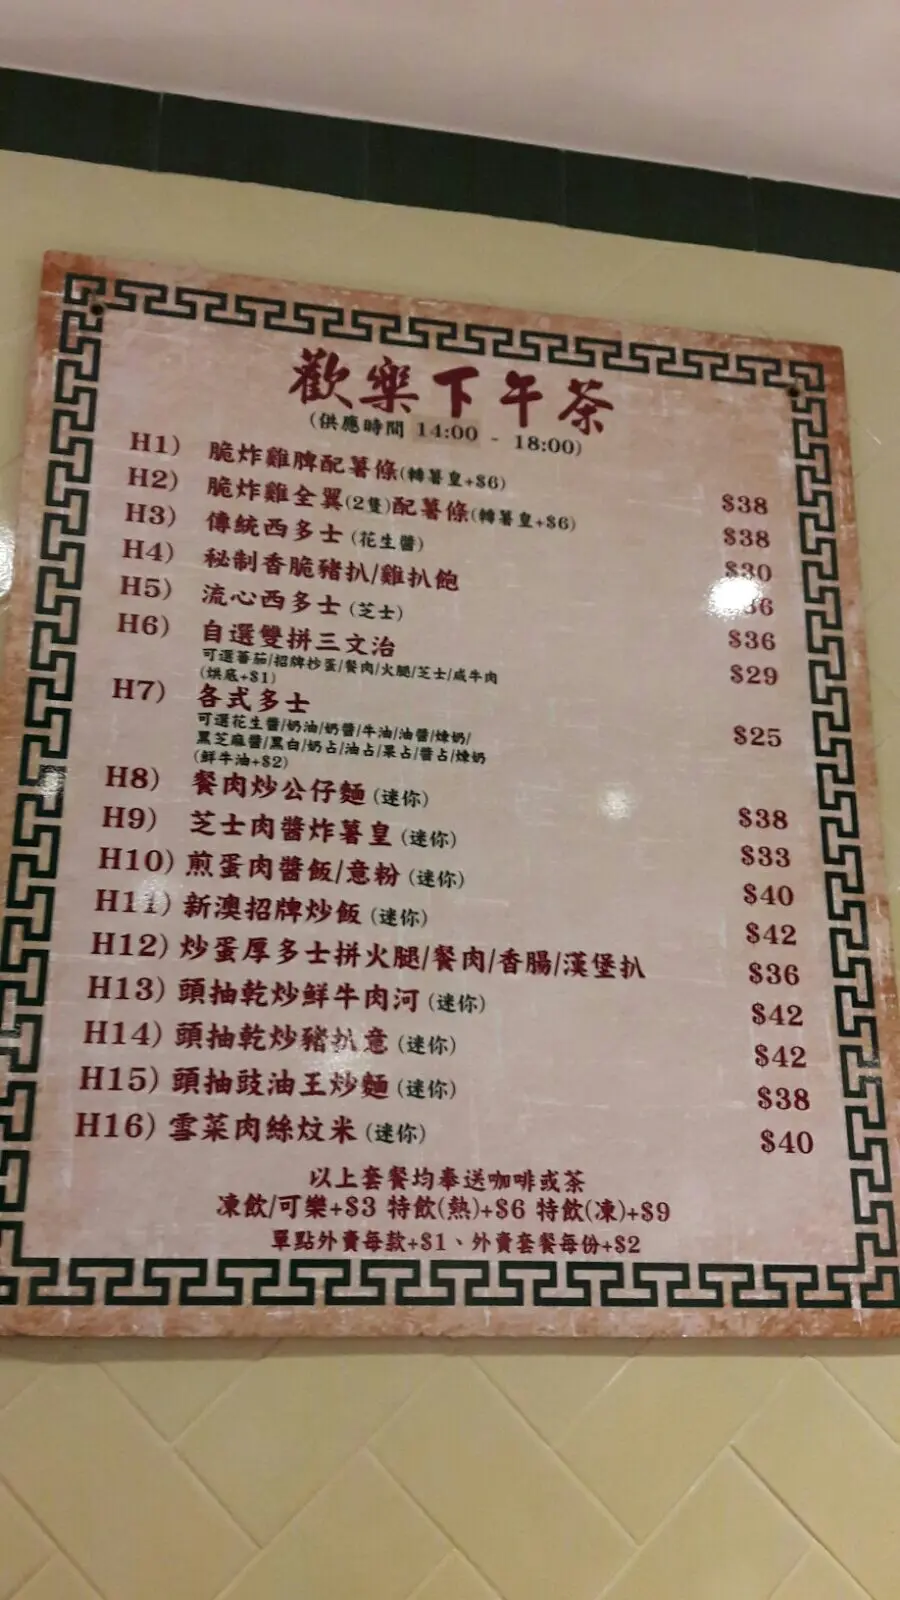 歡樂下午茶
(供應時間 14:00 - 18:00)
H1) 脆炸雞脾配薯條(轉薯皇+$6) $38
H2) 脆炸雞全翼(2隻)配薯條(轉薯皇+$6) $38
H3) 傳統西多士(花生醬) $30
H4) 秘制香脆豬扒/雞扒飽
H5) 流心西多士(芝士) $36
H6) 自選雙拼三文治 $29
可選蕃茄/招牌抄蛋/餐肉/火腿/芝士/咸牛肉
(烘底+$1)
H7) 各式多士 $25
可選花生醬/奶油/奶醬/牛油/油醬/煉奶/
黑芝麻醬/黑白/奶占/油占/果占/醬占/煉奶
(鮮牛油+$2)
H8) 餐肉炒公仔麵(迷你) $38
H9) 芝士肉醬炸薯皇(迷你) $33
H10) 煎蛋肉醬飯/意粉(迷你) $40
H11) 新澳招牌炒飯(迷你) $42
H12) 炒蛋厚多士拼火腿/餐肉/香腸/漢堡扒 $36
H13) 頭抽乾炒鮮牛肉河(迷你) $42
H14) 頭抽乾炒豬扒意(迷你) $42
H15) 頭抽豉油王炒麵(迷你) $38
H16) 雪菜肉絲炆米(迷你) $40
以上套餐均奉送咖啡或茶
凍飲/可樂+$3 特飲(熱)+$6 特飲(凍)+$9
單點外賣每款+$1、外賣套餐每份+$2